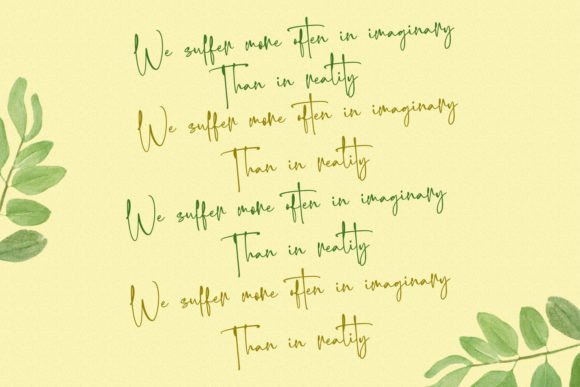 We suffer more often in imaginary
Than in reality
We suffer more often in imaginary
Than in reality
We suffer more often in imaginary
Than in reality
We suffer more often in imaginary
Than in reality